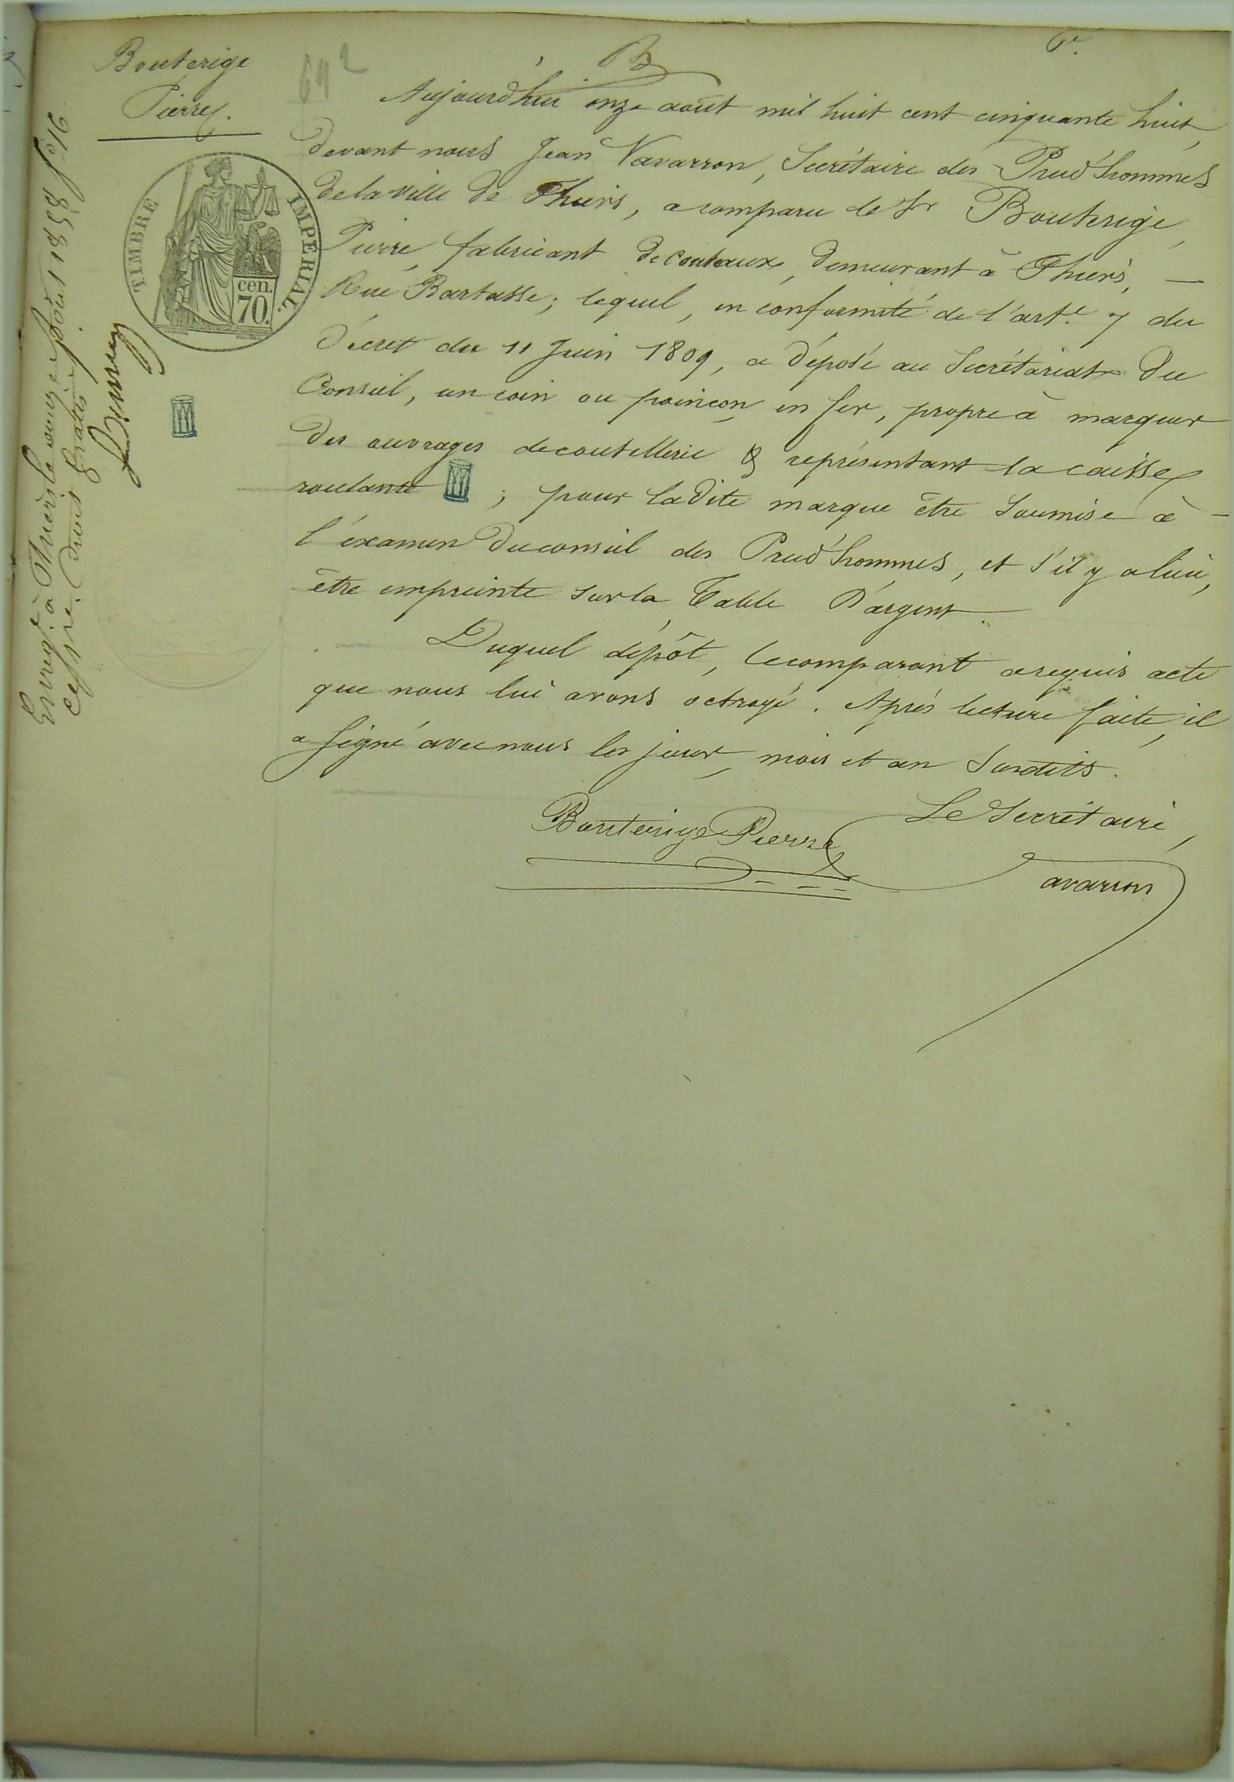 Bouterige
Pierre.
692
B
Aujourd'hui onze aout mil huit cent cinquante huit,
devant nous Jean Navarron, Secrétaire des Prud'hommes
de la ville de Thiers, a comparu le Sr Bouterige,
Pierre, fabricant de couteaux, demeurant à Thiers, —
Rue Bartasse; lequel, en conformité de l'art.e 7 du
Décret du 11 Juin 1809, a déposé au Secrétariat du
Conseil, un coin ou poinçon en fer, propre à marquer
des ouvrages de coutellerie & représentant la caisse
roulante ; pour ladite marque être soumise à —
l'éxamen du conseil des Prud'hommes, et s'il y a lieu,
être empreinte sur la Table D'argent.
Duquel dépôt, le comparant a requis acte
que nous lui avons octroyé. Après lecture faite, il
a signé avec nous les jour, mois et an susdits.
Le Secrétaire,
Bouterige Pierre
Navarron
TIMBRE IMPERIAL
cen.
70.
Enreg.é à Thiers le onze août 1858 fo. 16